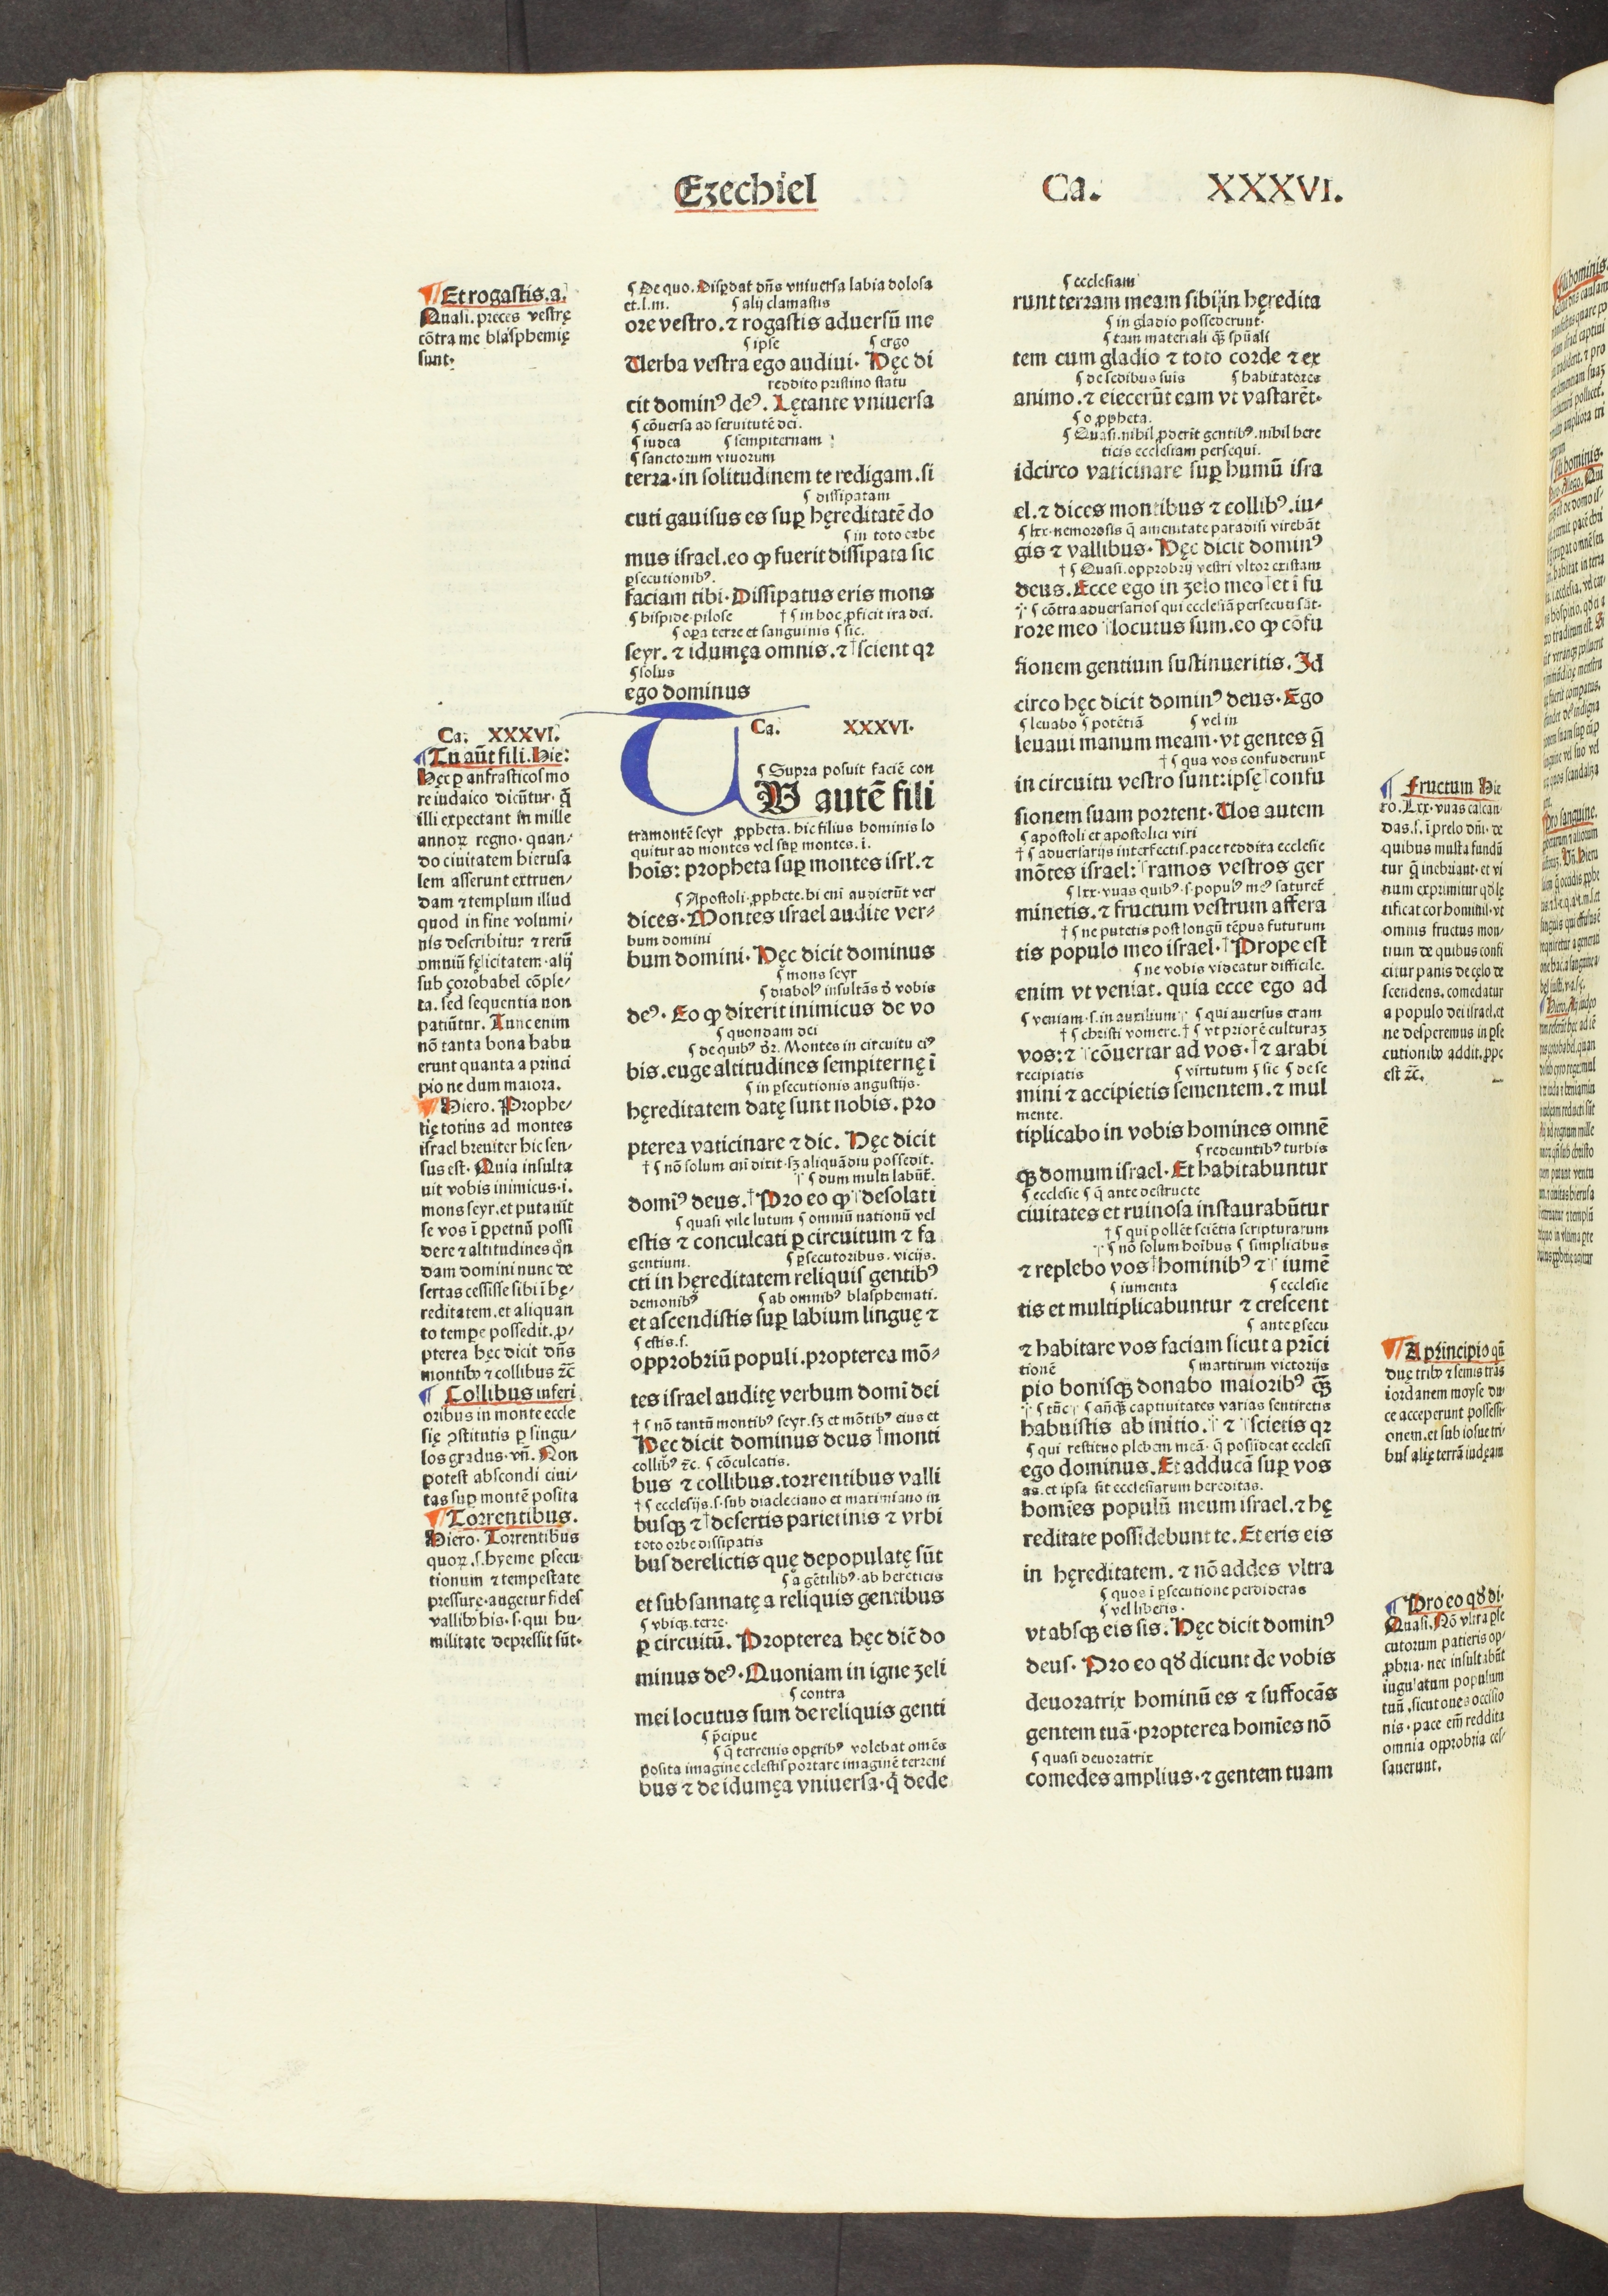 Ezechiel
Ca. XXXVI.
¶ Et rogastis. a.
Quasi. preces vestrę
cōtra me blasphemię
sunt.
Ca. XXXVI.
¶ Tu aūt fili. Hie:
Hęc ꝑ anfrasticos mo
re iudaico dicūtur. q̄
illi expectant in mille
annoꝝ regno. quan/
do ciuitatem hierusa
lem asserunt extruen/
dam ⁊ templum illud
quod in fine volumi/
nis describitur ⁊ rerū
omniū fęlicitatem. alij
sub çorobabel cōple/
ta. sed sequentia non
patiūtur. Tunc enim
nō tanta bona habu
erunt quanta a princi
pio ne dum maiora.
¶ Hiero. Prophe/
tię totius ad montes
israel breuiter hic sen/
sus est. Quia insulta
uit vobis inimicus. i.
mons seyr. et putauit
se vos ī ꝑpetuū possi
dere ⁊ altitudines qn̄
dam domini nunc de
sertas cessisse sibi ī hę/
reditatem. et aliquan
to tempe possedit. ꝓ/
pterea hęc dicit dn̄s
montibꝰ ⁊ collibus ⁊c̄
¶ Collibus inferi
oribus in monte eccle
się ꝯstitutis ꝑ singu/
los gradus. vn̄. Non
potest abscondi ciui/
tas suꝑ montē posita
¶ Torrentibus.
Hiero. Torrentibus
quoꝝ .s. hyeme ꝑsecu
tionum ⁊ tempestate
pressure. augetur fides
vallibꝰ his. s. qui hu/
militate depressit sūt.
¶ De quo. Disꝑdat dn̄s vniuersa labia dolosa
et. l. m. ¶ alij clamastis
ore vestro. ⁊ rogastis aduersū me
¶ ipse ¶ ergo
Uerba vestra ego audiui. Hęc di
reddito pristino statu
cit dominꝰ deꝰ. Lętante vniuersa
¶ cōuersa ad seruitutē dei.
¶ iudea ¶ sempiternam
¶ sanctorum viuorum
terra. in solitudinem te redigam. si
¶ dissipatam
cuti gauisus es suꝑ hęreditatē do
¶ in toto orbe
mus israel. eo ꝙ fuerit dissipata sic
ꝑsecutionibꝰ.
faciam tibi. Dissipatus eris mons
¶ hispide. pilose † ¶ in hoc ꝓficit ira dei.
¶ oꝑa terre et sanguinis ¶ sic.
seyr. ⁊ idumęa omnis. ⁊ †scient qꝛ
¶ solus
ego dominus
Ca. XXXVI.
¶ Supra posuit faciē con
TU autē fili
tra montē seyr ꝓpheta. hic filius hominis lo
quitur ad montes vel suꝑ montes. i.
hoīs: propheta suꝑ montes isrl̄. ⁊
¶ Apostoli. ꝓphete. hi eni audierūt ver
dices. Montes israel audite ver/
bum domini
bum domini. Hęc dicit dominus
¶ mons seyr
¶ diabolꝰ insultās ð vobis
deꝰ. Eo ꝙ dixerit inimicus de vo
¶ quondam dei
¶ de quibꝰ ðꝛ. Montes in circuitu eiꝰ
bis. euge altitudines sempiternę ī
¶ in ꝑsecutionis angustijs.
hęreditatem datę sunt nobis. pro
pterea vaticinare ⁊ dic. Hęc dicit
† ¶ nō solum eni dixit. sꝫ aliquādiu possedit.
¶ dum multi labūt̄.
domīꝰ deus. † Pro eo ꝙ desolati
¶ quasi vile lutum ¶ omniū nationū vel
estis ⁊ conculcati ꝑ circuitum ⁊ fa
gentium. ¶ ꝑsecutoribus. vicijs.
cti in hęreditatem reliquis gentibꝰ
demonibꝰ ¶ ab omnibꝰ blasphemati.
et ascendistis suꝑ labium linguę ⁊
¶ estis. s.
opprobriū populi. propterea mō/
tes israel auditę verbum domī dei
† ¶ nō tantū montibꝰ seyr. sꝫ et mōtibꝰ eius et
Hęc dicit dominus deus † monti
collibꝰ ⁊c. ¶ cōculcatis.
bus ⁊ collibus. torrentibus valli
† ¶ ecclesijs. s. sub diacleciano et maximiano in
busqꝫ ⁊ † desertis parietinis ⁊ vrbi
toto orbe dissipatis
bus derelictis quę depopulatę sūt
¶ a gētilibꝰ. ab hereticis
et subsannatę a reliquis gentibus
¶ vbiqꝫ. terre.
ꝑ circuitū. Propterea hęc dic̄ do
minus deꝰ. Quoniam in igne zeli
¶ contra
mei locutus sum de reliquis genti
¶ p̄cipue
¶ q̇ terrenis oꝑeribꝰ volebat omēs
posita imagine celestis portare imaginē terreni
bus ⁊ de idumęa vniuersa. q̇ dede
¶ ecclesiam
runt terram meam sibi in hęredita
¶ in gladio possederunt.
¶ tam materiali qꝫ spūali
tem cum gladio ⁊ toto corde ⁊ ex
¶ de sedibus suis ¶ habitatores
animo. ⁊ eiecerūt eam vt vastarēt.
¶ o ꝓpheta.
¶ Quasi. nihil ꝓderit gentibꝰ. nihil here
ticis ecclesiam persequi.
idcirco vaticinare suꝑ humū isra
el. ⁊ dices montibus ⁊ collibꝰ. iu/
¶ lxx. nemorosis q̄ amenitate paradisi virebāt
gis ⁊ vallibus. Hęc dicit dominꝰ
† ¶ Quasi. opprobrij vestri vltor existam
deus. Ecce ego in zelo meo et ī fu
¶ cōtra aduersarios qui ecclesiā persecuti sūt.
rore meo locutus sum. eo ꝙ cōfu
sionem gentium sustinueritis. Id
circo hęc dicit dominꝰ deus. Ego
¶ leuabo ¶ potētiā ¶ vel in
leuaui manum meam. vt gentes q̄
† ¶ qua vos confuderunt
in circuitu vestro sunt: ipsę † confu
sionem suam portent. Uos autem
¶ apostoli et apostolici viri
† ¶ aduersarijs interfectis. pace reddita ecclesie
mōtes israel: ramos vestros ger
¶ lxx. vuas quibꝰ. s. populꝰ meꝰ saturet̄
minetis. ⁊ fructum vestrum affera
† ¶ ne putetis post longū tēpus futurum
tis populo meo israel. † Prope est
¶ ne vobis videatur difficile.
enim vt veniat. quia ecce ego ad
¶ veniam. s. in auxilium ¶ qui auersus eram
† ¶ christi vomere. † ¶ vt priorē culturaꝫ
vos: ⁊ cōuertar ad vos. † ⁊ arabi
recipiatis ¶ virtutum ¶ sic ¶ de se
mini ⁊ accipietis sementem. ⁊ mul
mente.
tiplicabo in vobis homines omnē
¶ redeuntibꝰ turbis
qꝫ domum israel. Et habitabuntur
¶ ecclesie ¶ q̄ ante destructe
ciuitates et ruinosa instaurabūtur
† ¶ qui pollēt sciētia scripturarum
¶ nō solum hoībus ¶ simplicibus
⁊ replebo vos † hominibꝰ ⁊ iumē
¶ iumenta ¶ ecclesie
tis et multiplicabuntur ⁊ crescent
¶ ante ꝑsecu
⁊ habitare vos faciam sicut a prīci
tionē ¶ martirum victorijs
pio bonisqꝫ donabo maioribꝰ qꝫ
¶ tūc ¶ an̄qꝫ captiuitates varias sentiretis
habuistis ab initio. ⁊ scietis qꝛ
¶ qui restituo plebem meā. q̄ possideat ecclesi
ego dominus. Et adducā suꝑ vos
as. et ipsa sit ecclesiarum hereditas.
homīes populū meum israel. ⁊ hę
reditate possidebunt te. Et eris eis
in hęreditatem. ⁊ nō addes vltra
¶ quos ī ꝑsecutione perdideras
¶ vel liberis.
vt absqꝫ eis sis. Hęc dicit dominꝰ
deus. Pro eo qð dicunt de vobis
deuoratrix hominū es ⁊ suffocās
gentem tuā. propterea homīes nō
¶ quasi deuoratrix
comedes amplius. ⁊ gentem tuam
¶ Fructum Hie
ro. Lxx. vuas calcan/
das. s. ī prelo dn̄i. de
quibus musta fundū
tur q̄ inebriant. et vi
num exprimitur qð lę
tificat cor hominis. vt
omnis fructus mon/
tium de quibus confi
citur panis de cęlo de
scendens. comedatur
a populo dei israel. et
ne desperemus in ꝑse
cutionibꝰ addit. ꝓpe
est ⁊c̄.
¶ A principio qn̄
duę tribꝰ ⁊ semis trās
iordanem moyse du/
ce acceperunt possessi/
onem. et sub iosue tri/
bus alię terrā iudęam
¶ Pro eo qð di.
Quasi. Nō vltra ꝑse
cutorum patieris op/
ꝓbria. nec insultabūt
iugulatum populum
tuū. sicut oues occisio
nis. pace em̄ reddita
omnia opprobria ces/
sauerunt.